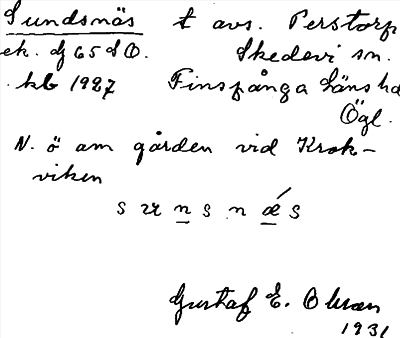 Sundsnäs t avs. Perstorp
ek. bl 65 SO. Skedevi sn.
kb 1927 Finspånga läns hd
Ögl.
N. ö am gården vid Krok-
viken
s n s n ǽ s
Gustaf E. Olsson
1931